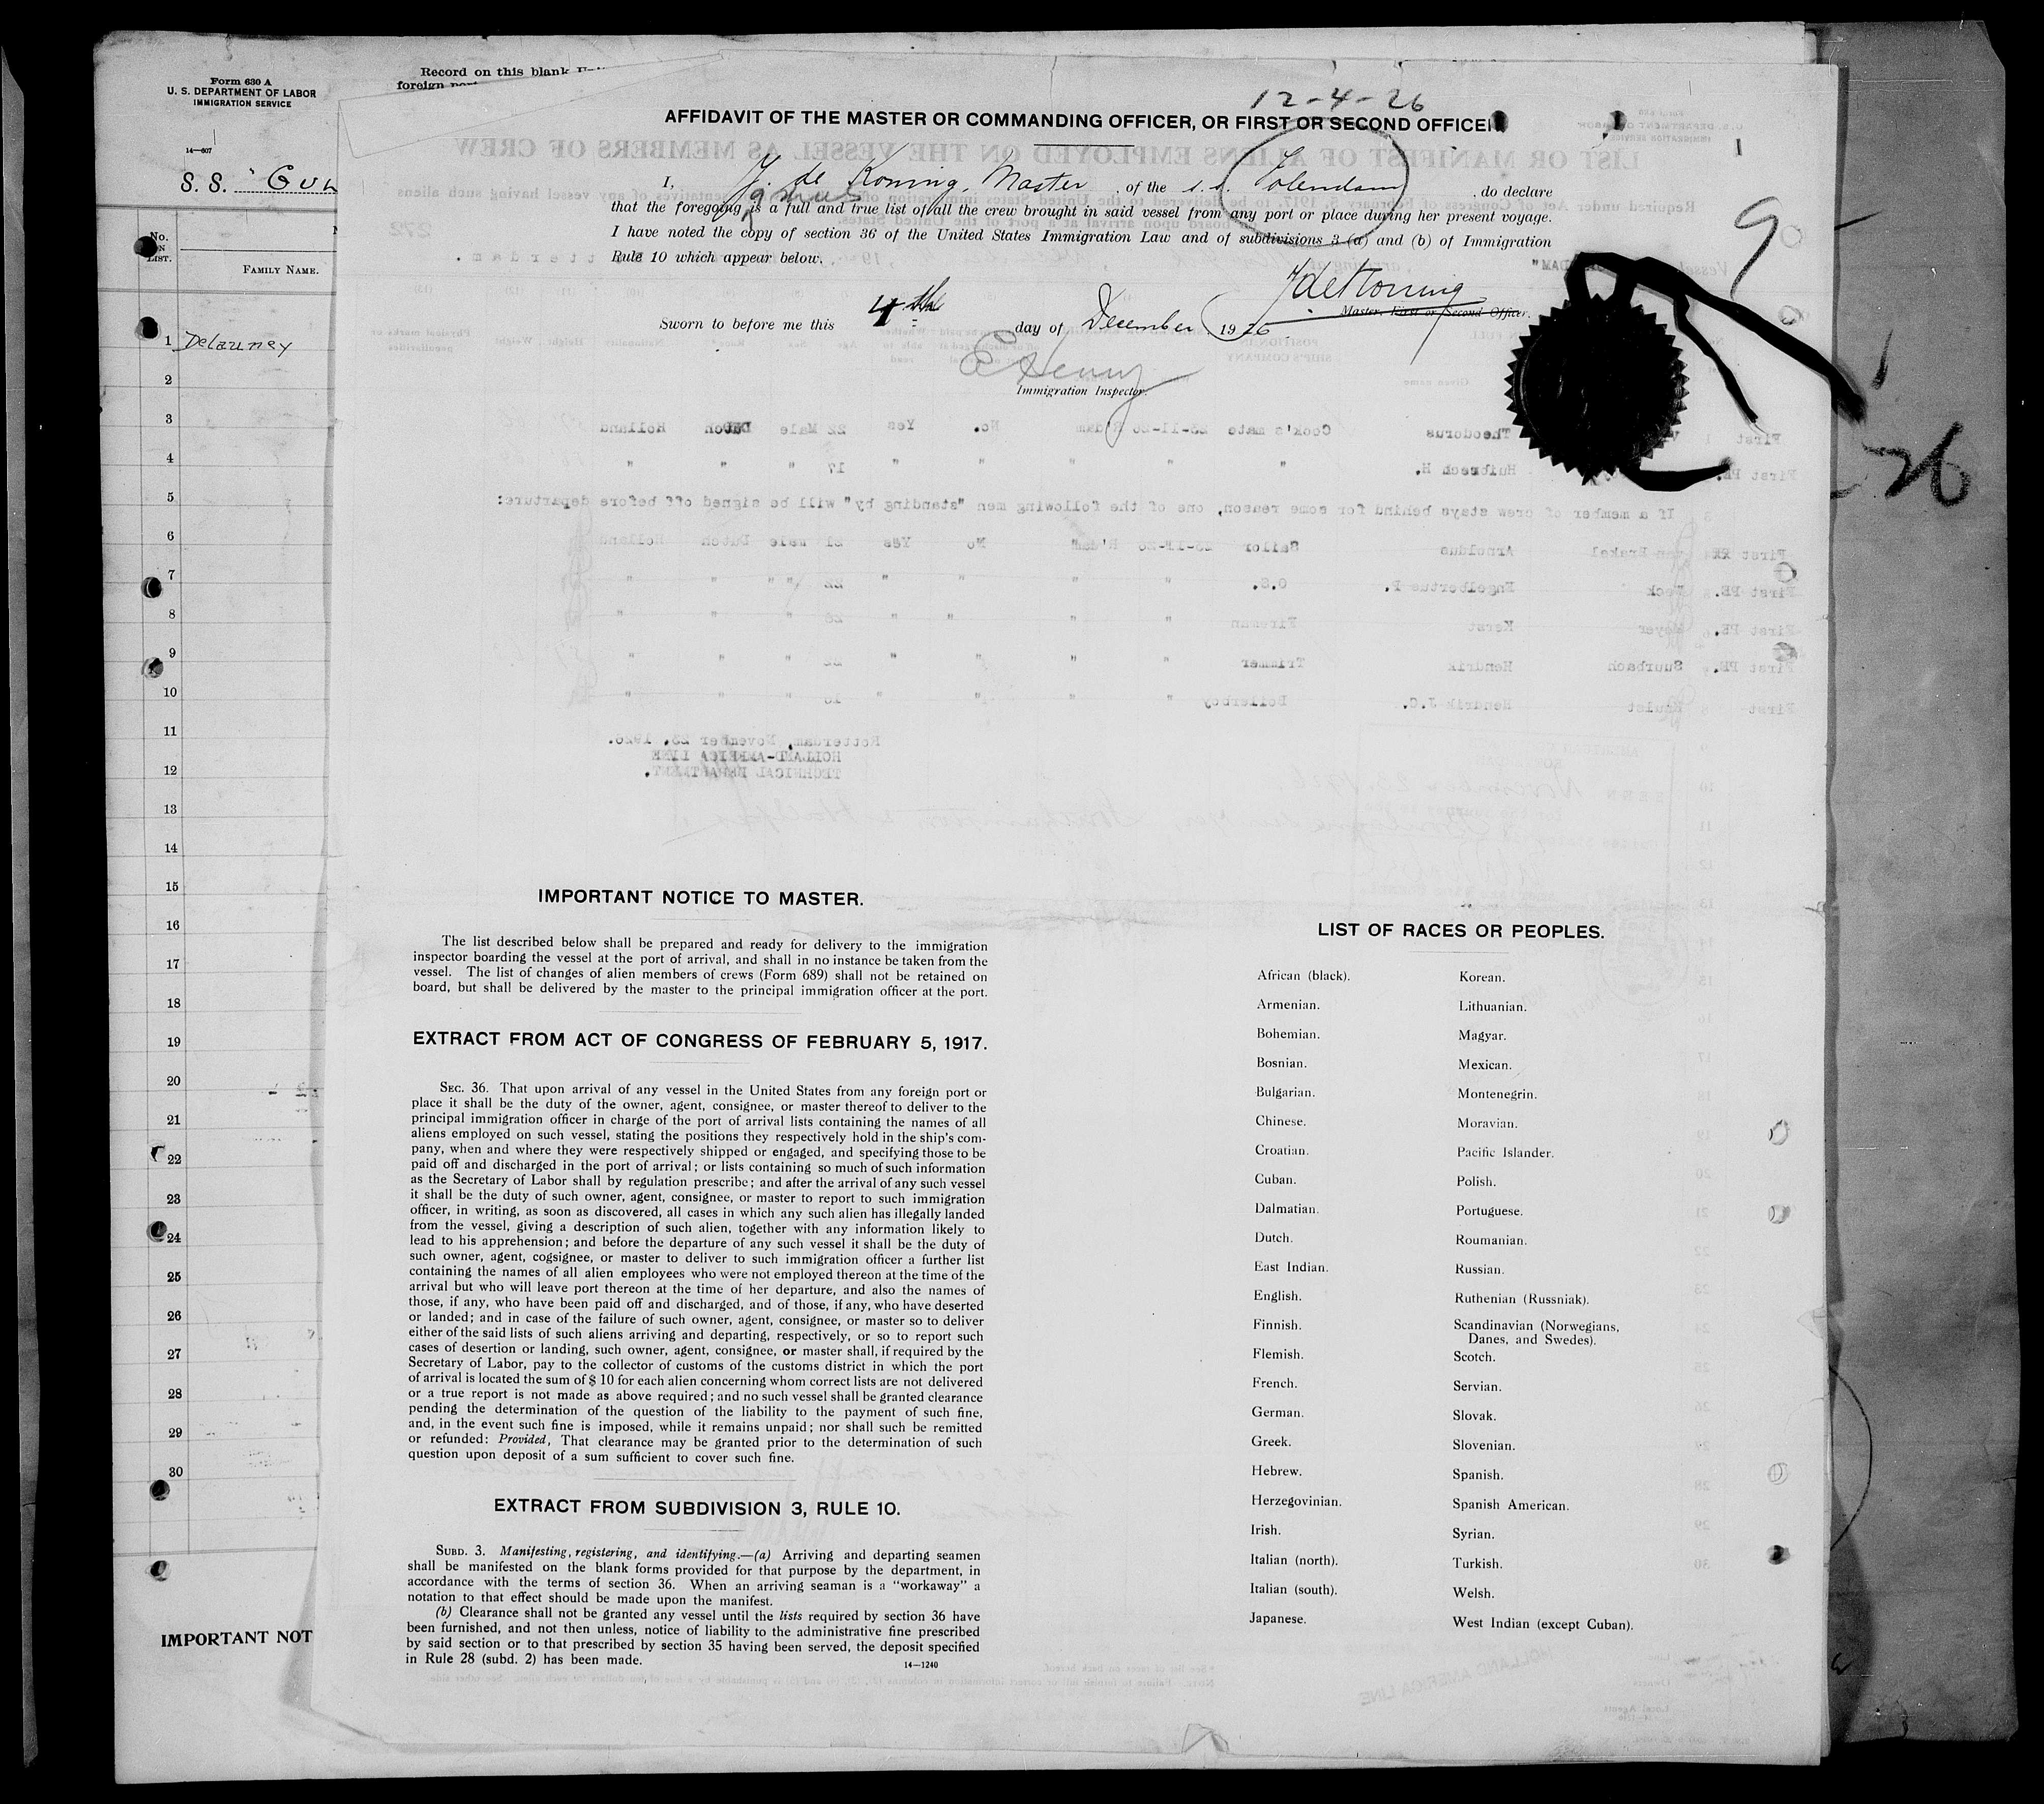 Form 630 A
U. S. DEPARTMENT OF LABOR
IMMIGRATION SERVICE
14—607
S. S.
No.
ON
LIST.
FAMILY NAME.
1 Delauney
2
3
4
5
6
7
8
9
10
11
12
13
14
15
16
17
18
19
20
21
22
23
24
25
26
27
28
29
30
IMPORTANT NOT
Record on this blank
foreign
12-4-26
AFFIDAVIT OF THE MASTER OR COMMANDING OFFICER, OR FIRST OR SECOND OFFICER
I, J. de Koning, Master, of the s.s. Volendam, do declare
that the foregoing is a full and true list of all the crew brought in said vessel from any port or place during her present voyage.
I have noted the copy of section 36 of the United States Immigration Law and of subdivisions 3 (a) and (b) of Immigration
Rule 10 which appear below.
JdeKoning
Master, First or Second Officer.
Sworn to before me this 4th day of December, 1926
Immigration Inspector.
9
1
26
If a member of crew stays behind for some reason, one of the following men "standing by" will be signed off before departure:
Rotterdam, November 23, 1926.
HOLLAND-AMERICA LINE
TECHNICAL DEPARTMENT.
IMPORTANT NOTICE TO MASTER.
The list described below shall be prepared and ready for delivery to the immigration
inspector boarding the vessel at the port of arrival, and shall in no instance be taken from the
vessel. The list of changes of alien members of crews (Form 689) shall not be retained on
board, but shall be delivered by the master to the principal immigration officer at the port.
EXTRACT FROM ACT OF CONGRESS OF FEBRUARY 5, 1917.
SEC. 36. That upon arrival of any vessel in the United States from any foreign port or
place it shall be the duty of the owner, agent, consignee, or master thereof to deliver to the
principal immigration officer in charge of the port of arrival lists containing the names of all
aliens employed on such vessel, stating the positions they respectively hold in the ship's com-
pany, when and where they were respectively shipped or engaged, and specifying those to be
paid off and discharged in the port of arrival; or lists containing so much of such information
as the Secretary of Labor shall by regulation prescribe; and after the arrival of any such vessel
it shall be the duty of such owner, agent, consignee, or master to report to such immigration
officer, in writing, as soon as discovered, all cases in which any such alien has illegally landed
from the vessel, giving a description of such alien, together with any information likely to
lead to his apprehension; and before the departure of any such vessel it shall be the duty of
such owner, agent, cogsignee, or master to deliver to such immigration officer a further list
containing the names of all alien employees who were not employed thereon at the time of the
arrival but who will leave port thereon at the time of her departure, and also the names of
those, if any, who have been paid off and discharged, and of those, if any, who have deserted
or landed; and in case of the failure of such owner, agent, consignee, or master so to deliver
either of the said lists of such aliens arriving and departing, respectively, or so to report such
cases of desertion or landing, such owner, agent, consignee, or master shall, if required by the
Secretary of Labor, pay to the collector of customs of the customs district in which the port
of arrival is located the sum of $ 10 for each alien concerning whom correct lists are not delivered
or a true report is not made as above required; and no such vessel shall be granted clearance
pending the determination of the question of the liability to the payment of such fine,
and, in the event such fine is imposed, while it remains unpaid; nor shall such be remitted
or refunded: Provided, That clearance may be granted prior to the determination of such
question upon deposit of a sum sufficient to cover such fine.
EXTRACT FROM SUBDIVISION 3, RULE 10.
SUBD. 3. Manifesting, registering, and identifying.—(a) Arriving and departing seamen
shall be manifested on the blank forms provided for that purpose by the department, in
accordance with the terms of section 36. When an arriving seaman is a "workaway" a
notation to that effect should be made upon the manifest.
(b) Clearance shall not be granted any vessel until the lists required by section 36 have
been furnished, and not then unless, notice of liability to the administrative fine prescribed
by said section or to that prescribed by section 35 having been served, the deposit specified
in Rule 28 (subd. 2) has been made.
14—1240
LIST OF RACES OR PEOPLES.
African (black).
Armenian.
Bohemian.
Bosnian.
Bulgarian.
Chinese.
Croatian.
Cuban.
Dalmatian.
Dutch.
East Indian.
English.
Finnish.
Flemish.
French.
German.
Greek.
Hebrew.
Herzegovinian.
Irish.
Italian (north).
Italian (south).
Japanese.
Korean.
Lithuanian.
Magyar.
Mexican.
Montenegrin.
Moravian.
Pacific Islander.
Polish.
Portuguese.
Roumanian.
Russian.
Ruthenian (Russniak).
Scandinavian (Norwegians,
Danes, and Swedes).
Scotch.
Servian.
Slovak.
Slovenian.
Spanish.
Spanish American.
Syrian.
Turkish.
Welsh.
West Indian (except Cuban).